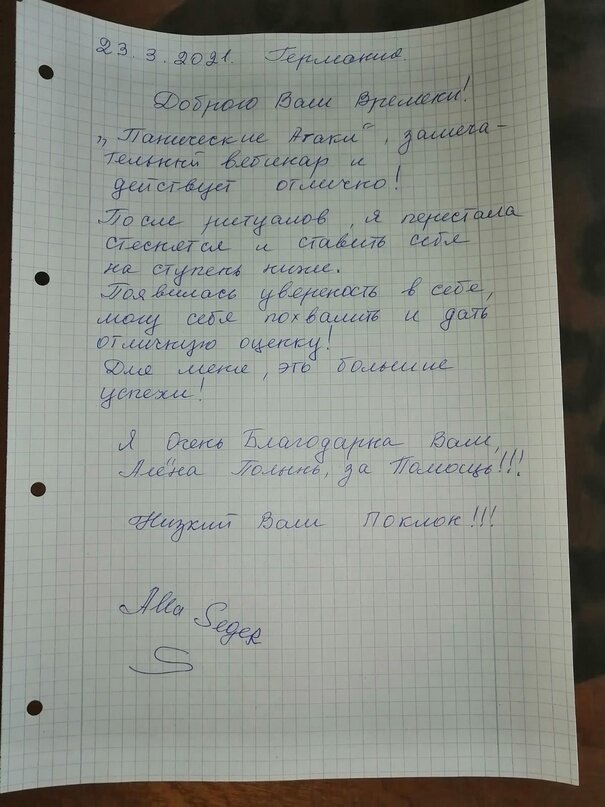 23.3.2021. Германия.
Доброго Вам Времени!
„Панические Атаки“, замеча-
тельный вебинар и
действует отлично!
После ритуалов, я перестала
стеснятся и ставить себя
на ступень ниже.
Появилась увереность в себе,
могу себя похвалить и дать
отличную оценку!
Для меня, это большие
успехи!
Я Очень Благодарна Вам,
Алёна Полынь, за Помощь!!!
Низкий Вам Поклон!!!
Alla Seger